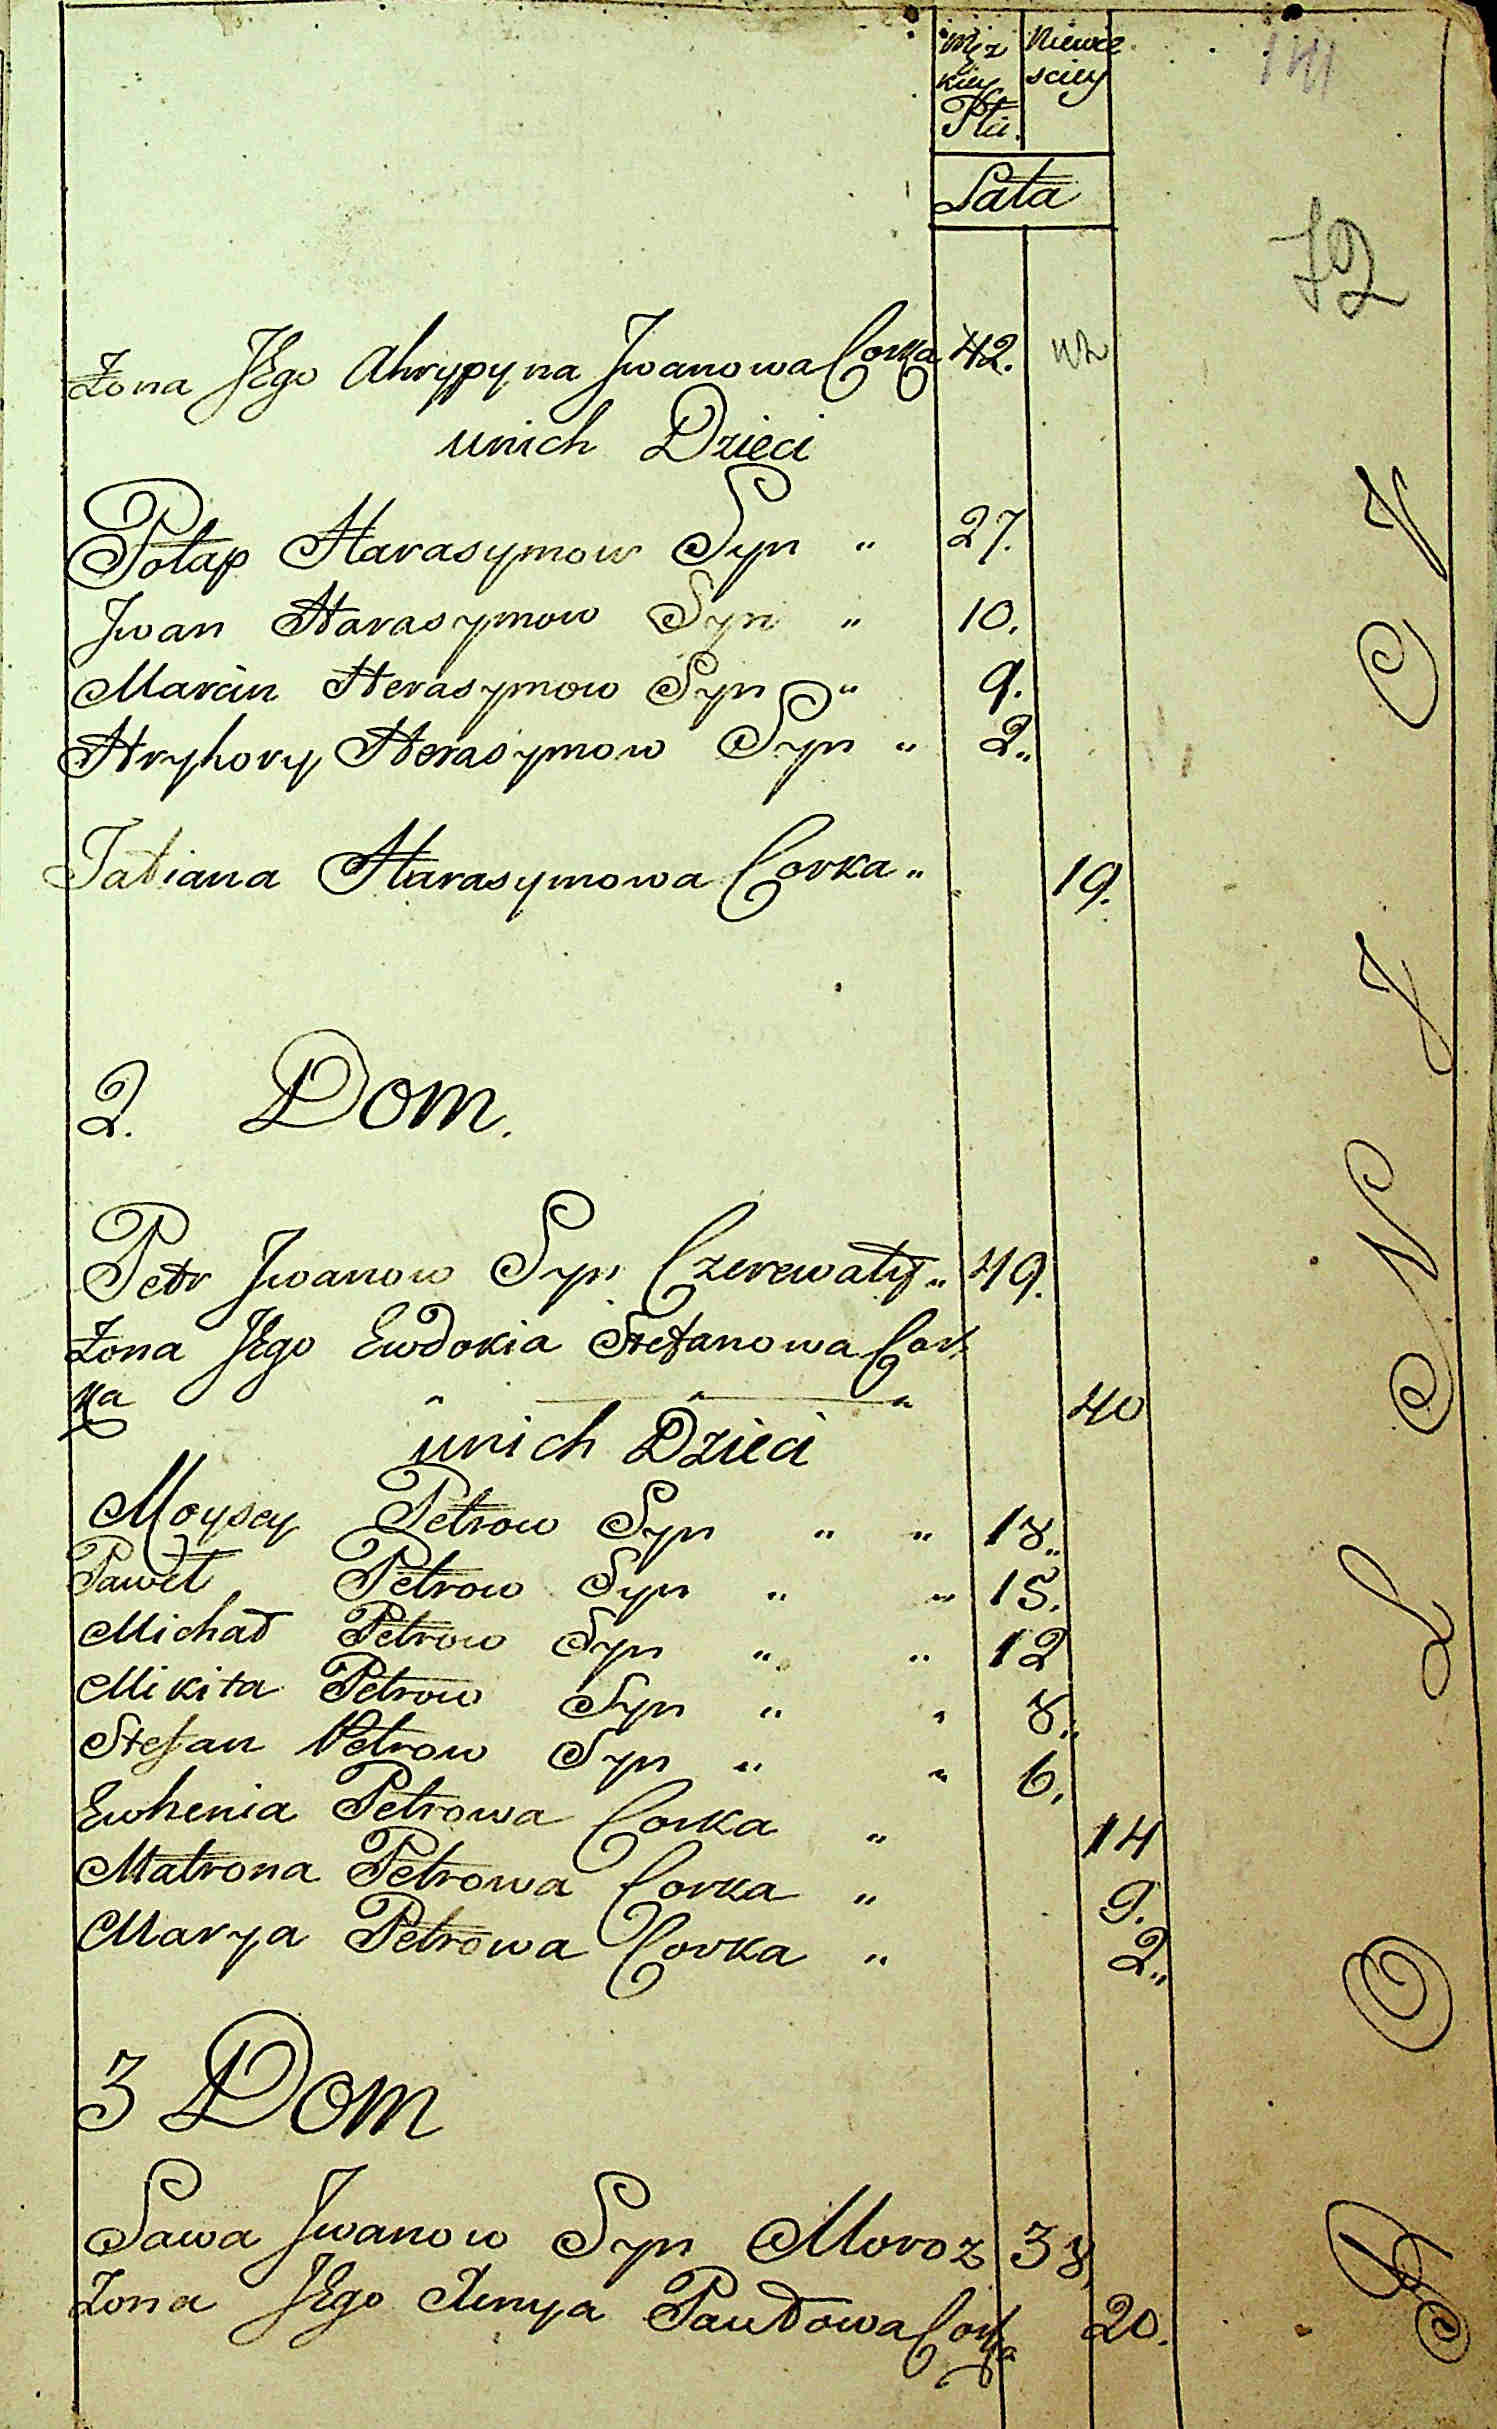 Męz Niewie
kiey sciey
Płci.
Lata
72
Żona JEgo Ahrypyna Jwanowa Corka 42.
unich Dzieci
Potap Harasymow Syn " 27.
Jwan Harasymow Syn " 10.
Marcin Herasymow Syn " 9.
Hryhory Herasymow Syn " 2.
Tatiana Harasymowa Corka " 19.
2. Dom.
Petr Jwanow Syn Czerewatyi " 49.
Żona JEgo Ewdokia Stefanowa Cor.
ka " " " 40
unich Dzieci
Moysey Petrow Syn " " 18.
Paweł Petrow Syn " " 15.
Michał Petrow Syn " " 12
Mikita Petrow Syn " " 8.
Stefan Petrow Syn " " 6.
Ewhenia Petrowa Corka " 14
Matrona Petrowa Corka " 9.
Marya Petrowa Corka " 2.
3 Dom
Sawa Jwanow Syn Moroz 38,
Żona JEgo Xenya Pawłowa Corka 20.